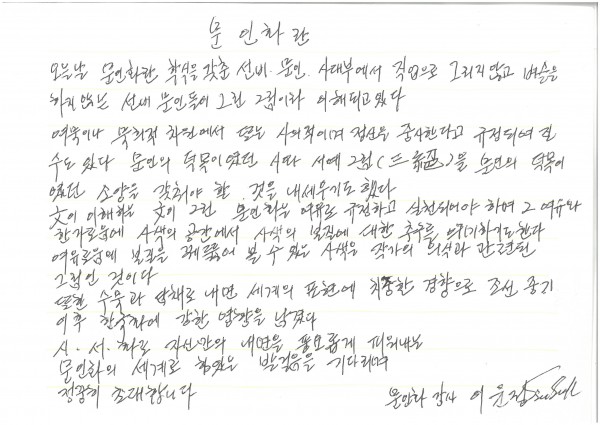 문인화란
오늘날 문인화란 학식을 갖춘 선비. 문인. 사대부에서 직업으로 그리지 않고 벼슬을
하지 않는 선비 문인들이 그린 그림이라 이해되고 있다
여묵이나 묵희적 차원에서 또는 사의적이며 정신을 중시한다고 규정되어 질
수도 있다 문인의 덕목이였던 시와 서예 그림(三絶)을 문인의 덕목이
였던 소양을 갖춰야 할 것을 내세우기도 했다
文이 이해하는 文이 그린 문인화를 여유로 규정하고 실현되어야 하며 그 여유와
한가로움에 사색의 공간에서 사색의 본질에 대한 추구를 야기하기도한다
여유로움에 본질을 꿰뚫어 볼 수 있는 사색을 작가의 의식과 관련된
그림인 것이다
또한 수묵과 담채로 내면 세계의 표현에 치중한 경향으로 조선 중기
이후 한국화에 강한 영향을 남겼다
시. 서. 화로 자신만의 내면을 풍요롭게 피워내는
문인화의 세계로 힘있는 발걸음을 기다리며
정중히 초대합니다
문인화 강사 이윤점